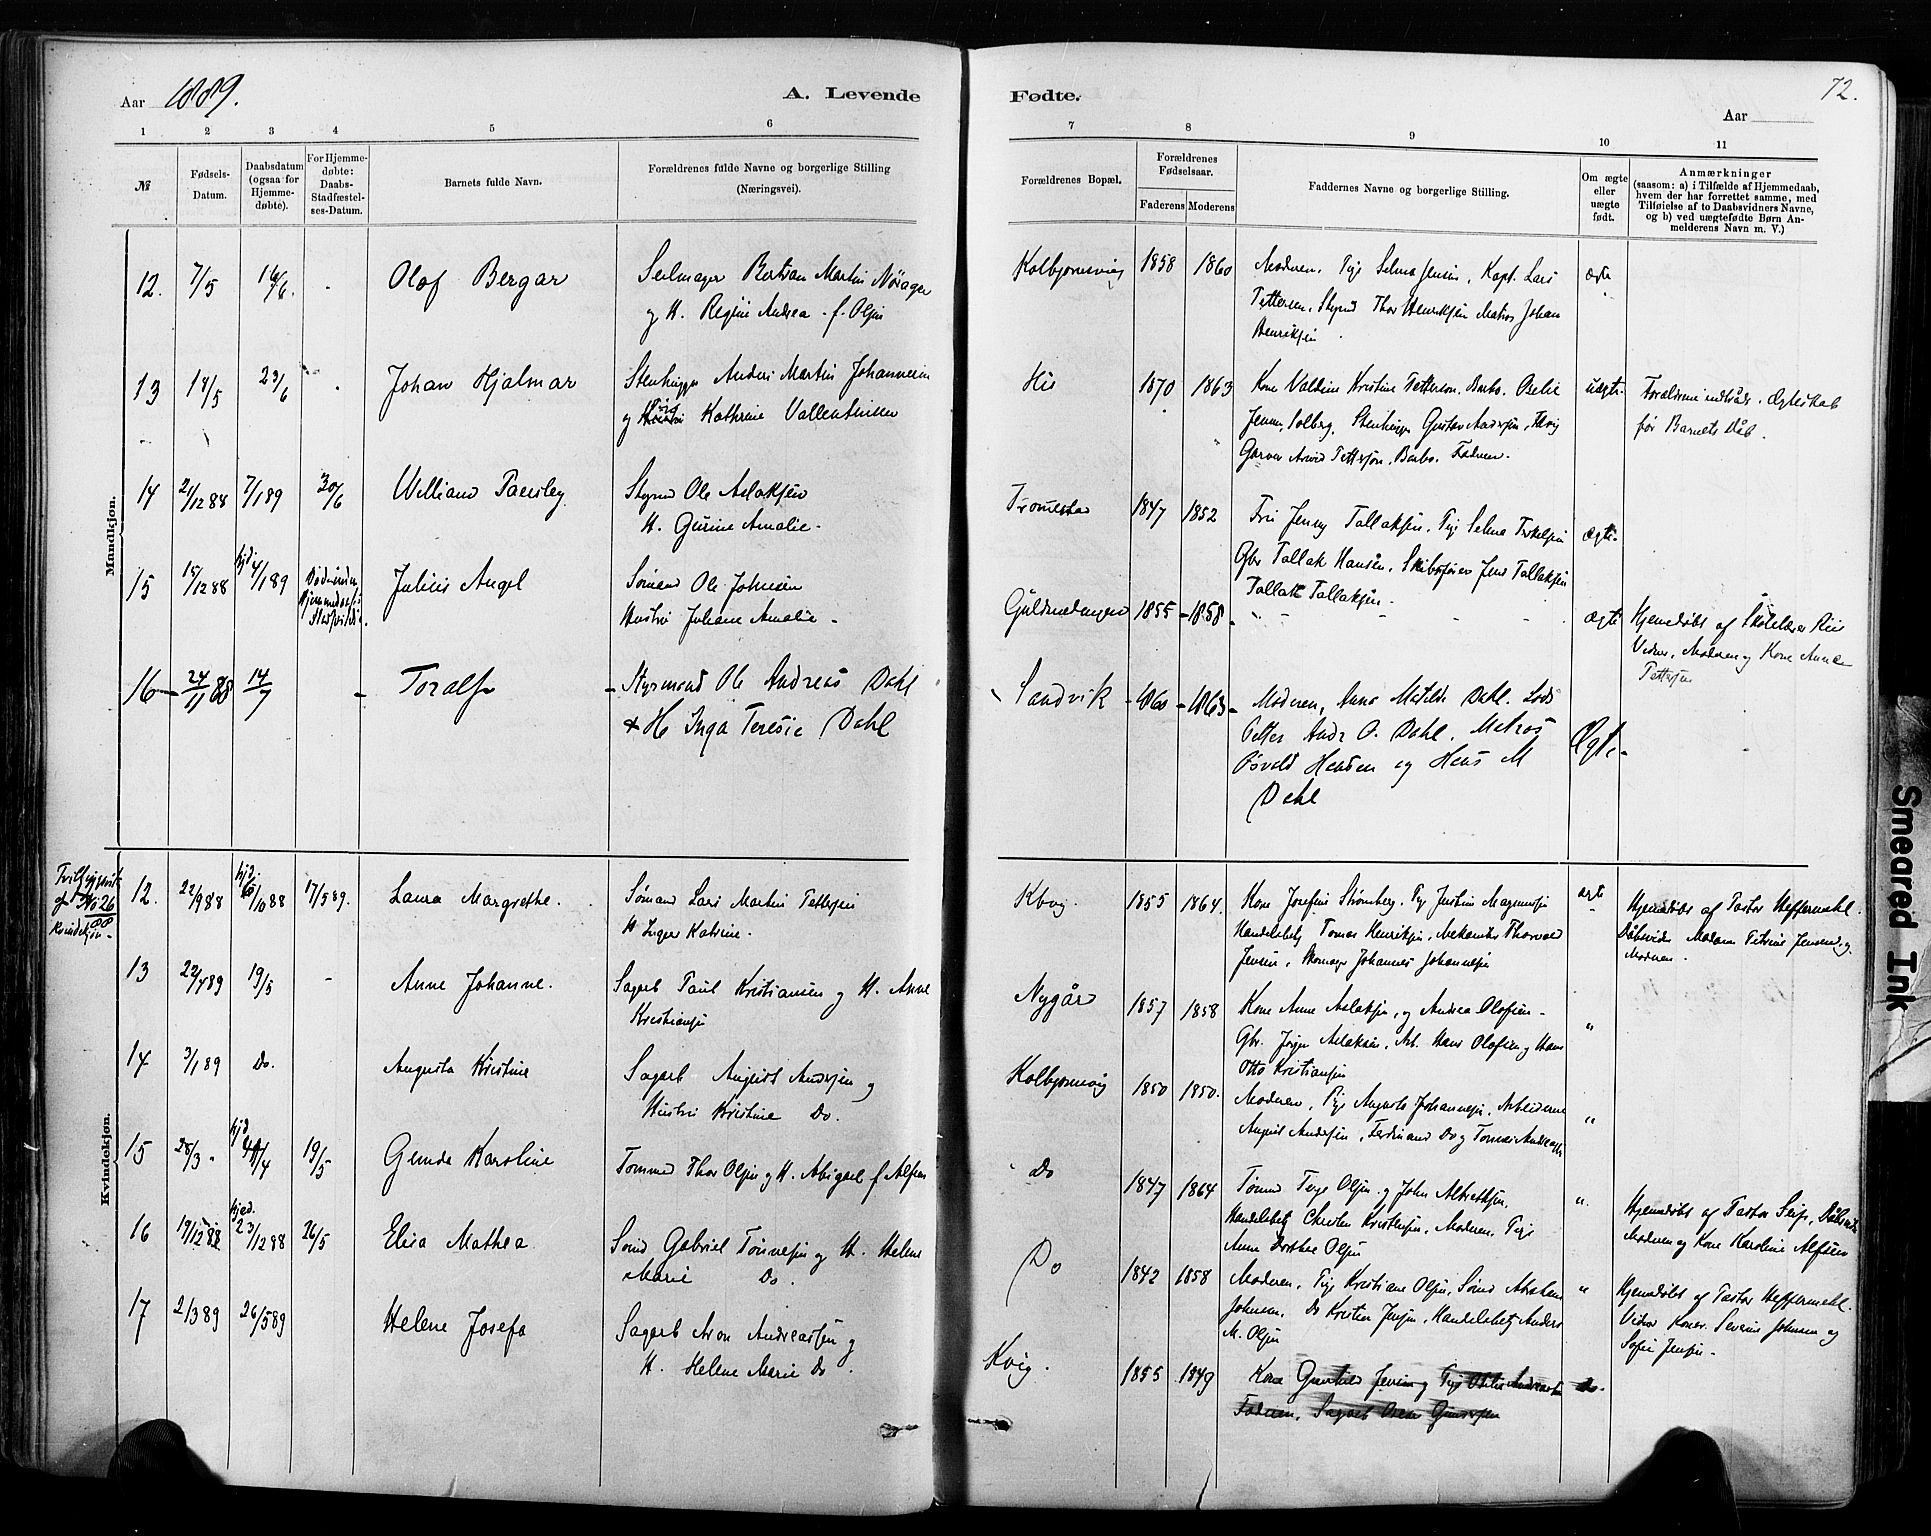 Aar 1889.
A. Levende
Fødte.
72.
Aar
1 2 3 4 5 6 7 8 9 10 11
№
Fødsels-
Datum.
Daabsdatum
(ogsaa for
Hjemme-
døbte).
For Hjemme-
døbte:
Daabs-
Stadfæstel-
ses-Datum.
Barnets fulde Navn.
Forældrenes fulde Navne og borgerlige Stilling
(Næringsvei).
Forældrenes Bopæl.
Forældrenes
Fødselsaar.
Faderens Moderens
Faddernes Navne og borgerlige Stilling.
Om ægte
eller
uægte
født.
Anmærkninger
(saasom: a) i Tilfælde af Hjemmedaab,
hvem der har forrettet samme, med
Tilføielse af to Daabsvidners Navne,
og b) ved uægtefødte Børn An-
melderens Navn m. V.)
Mandkjøn.
12. 7/5 16/6. - Olaf Bergar
Seilmager Bertran Martin
og H. Regine Andrea f. Olsen
Kolbjørnsvig 1858 1860
Moderen, Pige Selma Jensen, Kapt. Lars
Pettersen, Styrmd Thor Henriksen Matros Johan
Henriksen
ægte
13 14/5 23/6 - Johan Hjalmar
Stenhugger Anders Martin Johannesen
og Kathrine Vallentinsen
His 1870 1863
Kone Kristine Pettersen, Barbo.
Jensen, Solberg, Stenhugger Gustav Andersen,
Garver Arvid Pettersen, Barbo. Faderen.
uægte
Forældrene indtrådt i Ægteskab
før Barnets Dåb.
14 21/12 88 7/1 89 30/6 William
Styrmd Ole Aslaksen
H. Gurine Amalie.
Tromøstad 1847 1852
Fru Jensy Tallaksen, Pige Selma Terkelsen
Gbr Tallak Hansen, Skibsfører Jens Tallaksen
Tallak Tallaksen.
ægte
15 15/12 88 hjd 4/1 89 Julius Angel
Sømand Ole Johnsen
Hustru Johane Amalie.
Guldmedengen 1855 - 1858
ægte
Hjemdøbt af Skolelærer Riis
Vidner, Moderen og Kone Anne
Pettersen
16 - 24/11 88 14/7 - Toralf
Styrmand Ole Andreas Dahl
& H Inga Teresie Dahl
Sandvik - 1860 - 1863
Moderen, Anna Matilde Dahl. Lods
Petter Andr O. Dahl, Matros
Osvald Hansen og Hans M
Dahl
Ægte
Kvindekjøn.
Tvillingsøster
af № 26
88
Kvindekjøn
12. 22/9 88 hjd. 10/10 88 17/5 89. Laura Margrethe.
Sømand Lars Martin Pettersen
H Inger Katrine.
Kbvig. 1855 1864.
Kone Josefine Strømberg, Pige Justine Magnusen
Handelsbetj Tomas Henriksen, Mekaniker Thorvald
Jensen, Skomager Johannes Johannesen
ægte
Hjemdøbt af Pastor Heffermehl.
Dåbsvidn Madam Petrine Jensen og
Moderen.
13 22/4 89 19/5 - Anne Johanne.
Sagarb Paul Kristiansen og H. Anne
Kristiansen
Nygård 1857 1858
Kone Anne Aslaksen, og Andrea Olofsen -
Gbr. Jørgen Aslaksen, Arb. Hans Olofsen og Hans
Otto Kristiansen
"
14 3/1 89 Do. Augusta Kristine
Sagarb August Andersen og
Hustru Kristine Do.
Kolbjørnsvig 1850 1850.
Moderen, Pige Augusta Johannesen, Arbeiderne
August Andersen, Ferdinand Do og Tomas Andreassen
"
15 28/3 " hjd 4/4 19/5 Gunda Karoline
Tømmd Thor Olsen og H. Abigael f Alfsen
Do 1847 1864
Tømmd Terje Olsen og John Albretsen,
Handelsbetj Christen Kristensen, Moderen, Pige
Anne Dorthea Olsen
"
Hjemdøbt af Pastor Seip, Dåbsvidn
Moderen og Kone Karoline Alfsen
16 19/12 88 hjed. 23/12 88 26/5 Elisa Mathea
Sømd Gabriel Tønnesen og H. Helene
Marie Do.
Do 1842 1858
Moderen, Pige Kristiane Olsen, Sømd Abraham
Johnsen, Do Kristen Jensen, Handelsbetj Anders
M. Olsen
"
Hjemdøbt af Pastor Heffermehl.
Vidner Koner. Severine Johnsen og
Sofie Jensen.
17 2/3 89 26/5 89 Helene Josefa
Sagarb Aron Andreassen og
H. Helene Marie Do.
Kvig. 1855 1849
Kone Gunhild Jensen og Pige Otilie Andreassen Do.
Faderen, Sagarb Gundersen
Smeared Ink